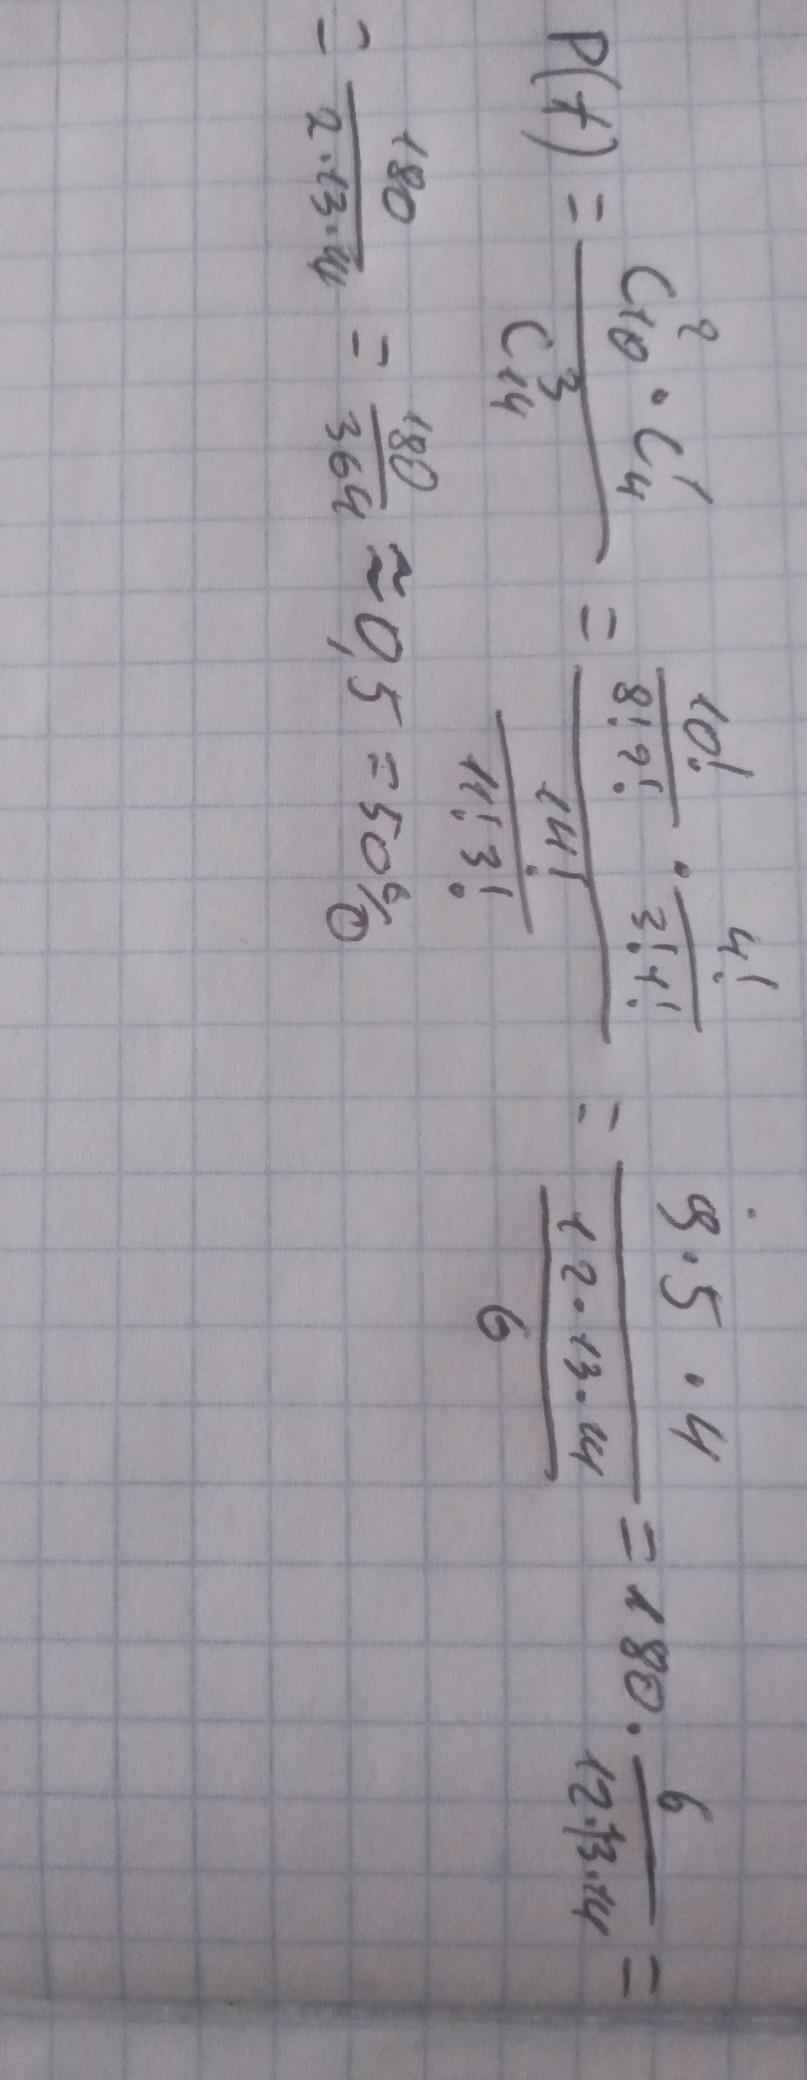 P(A) = \frac{C_{10}^{2} \cdot C_{4}^{1}}{C_{14}^{3}} = \frac{\frac{10!}{8!2!} \cdot \frac{4!}{3!1!}}{\frac{14!}{11!3!}} = \frac{9 \cdot 5 \cdot 4}{\frac{12 \cdot 13 \cdot 14}{6}} = 180 \cdot \frac{6}{12 \cdot 13 \cdot 14} =
= \frac{180}{2 \cdot 13 \cdot 14} = \frac{180}{364} ≈ 0,5 = 50%